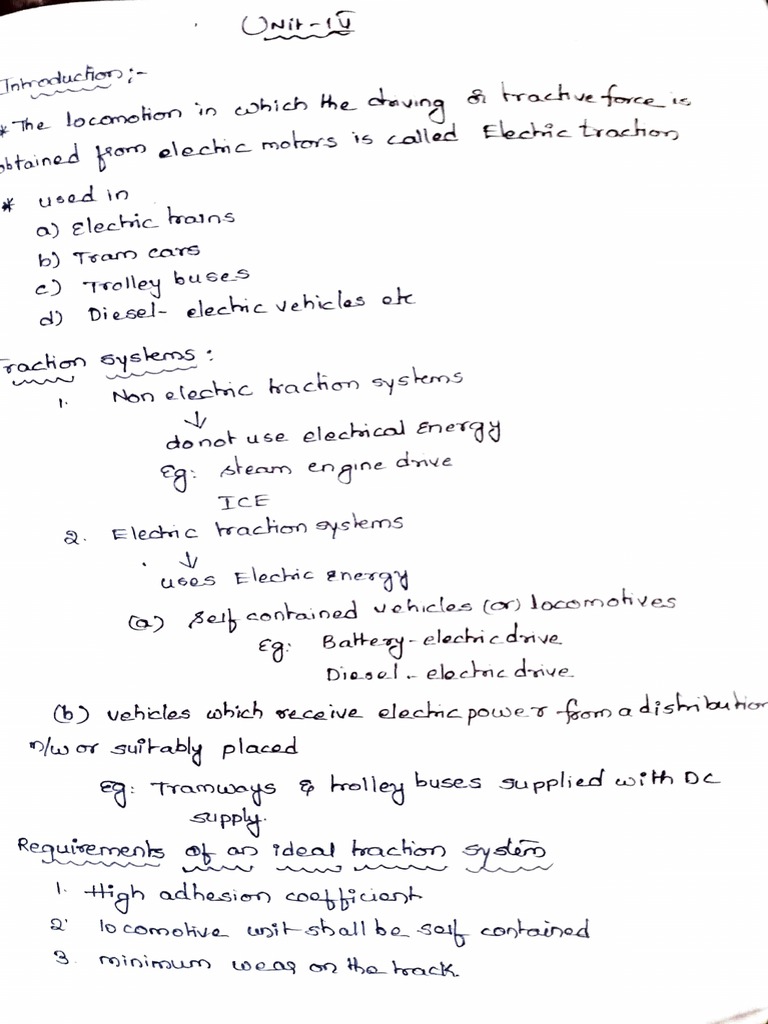 Unit-IV
Introduction:-
* The locomotion in which the driving or tractive force is
obtained from electric motors is called Electric traction
* used in
a) Electric trains
b) Tram cars
c) Trolley buses
d) Diesel- electric vehicles etc
Traction systems:
1. Non electric traction systems
↓
do not use electrical Energy
Eg: steam engine drive
ICE
2. Electric traction systems
↓
uses Electric Energy
(a) self contained vehicles (or) locomotives
Eg: Battery-electric drive
Diesel - electric drive
(b) vehicles which receive electric power from a distribution
n/w or suitably placed
Eg: Tramways & trolley buses supplied with DC
supply.
Requirements of an ideal traction system
1. High adhesion coefficient
2. locomotive unit shall be self contained
3. minimum wear on the track.